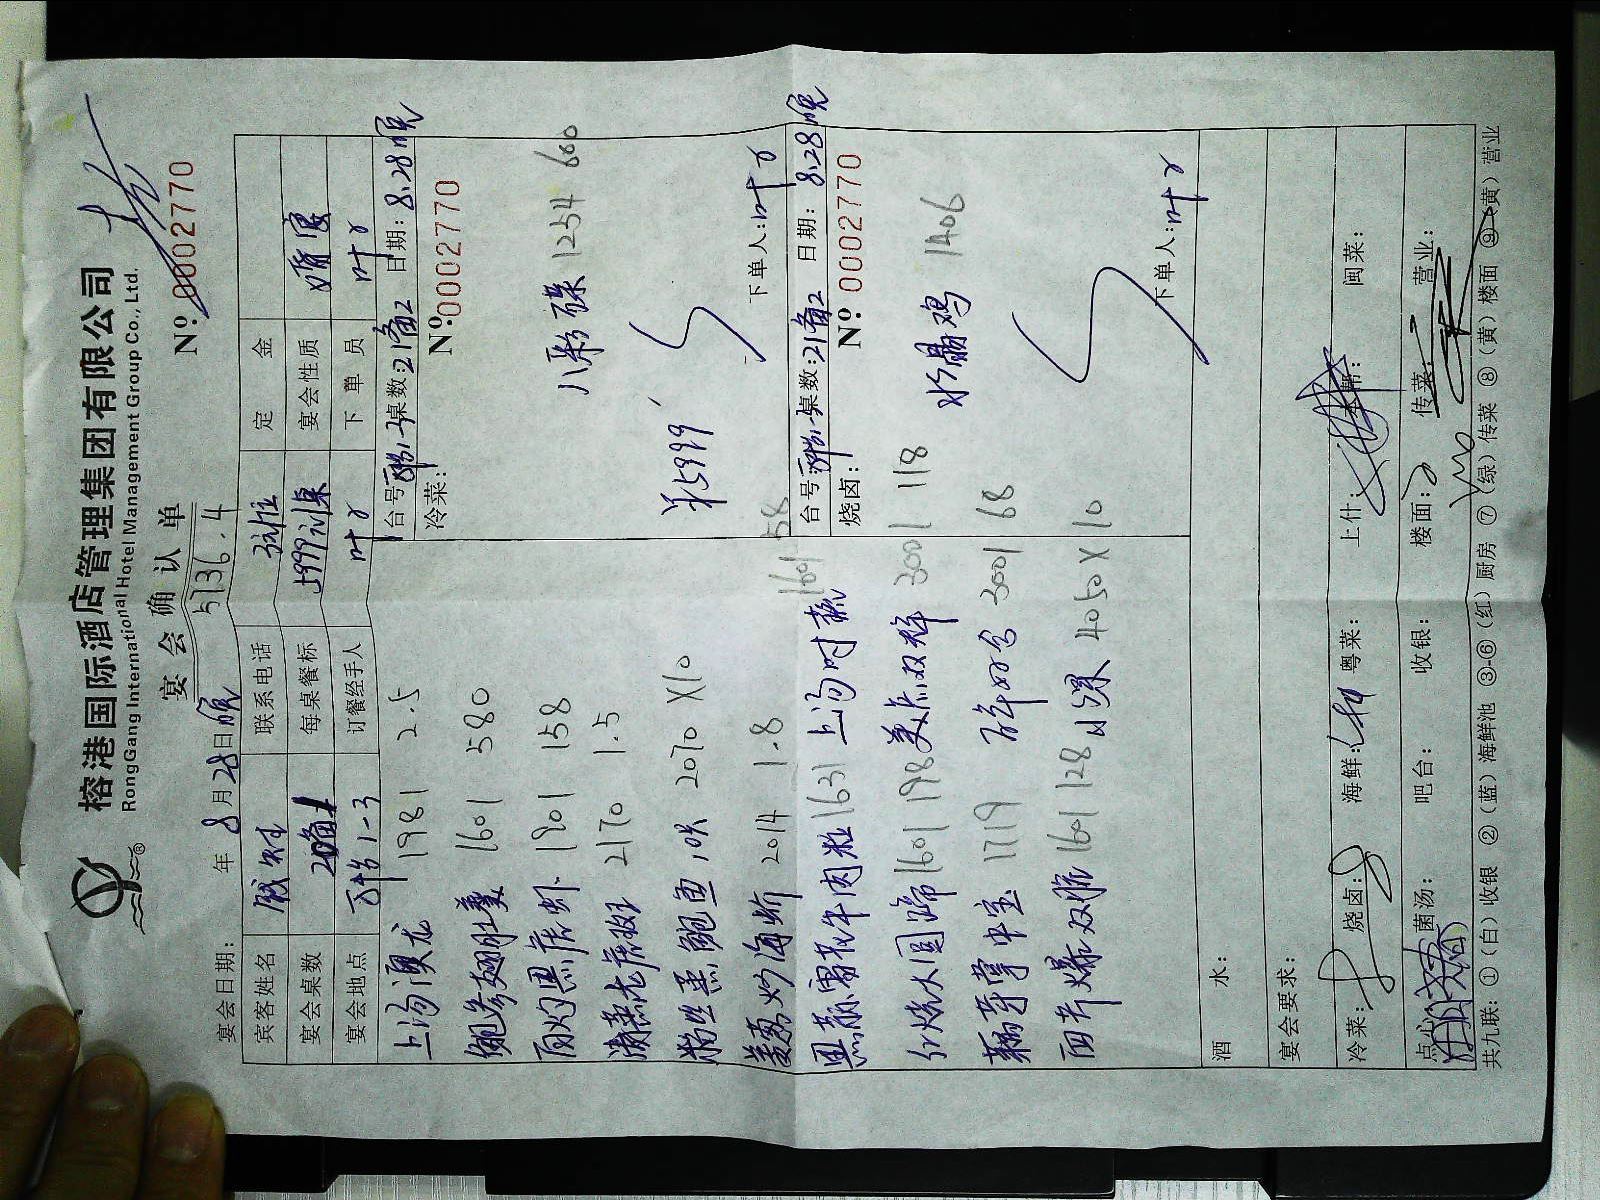 榕港国际酒店管理集团有限公司
RongGang International Hotel Management Group Co., Ltd.
宴会确认单
Nº 0002770
5736.4
宴会日期: 年 8 月 28 日 晚
宾客姓名 联系电话 定金
宴会桌数 每桌餐标 5999 宴会性质 婚宴
宴会地点 1-3 订餐经手人 叶 下单员 叶
台号: 桌数: 21备2 日期: 8.28晚
冷菜: Nº: 0002770
八彩碟 1254 600
¥5999
下单人: 叶
台号: 桌数: 21备2 日期: 8.28晚
烧卤: Nº: 0002770
水晶鸡 1406
下单人: 叶
上汤澳龙 1981 2.5
鲍参翅肚羹 1601 580
白灼 虾 1901 158
清蒸老虎斑 2170 1.5
粉丝蒸鲍鱼 10只 2070 X10
姜葱炒海蚧 2014 1.8
牛肉粒 1631 上汤时蔬 1601 58
大圆蹄 1601 198 美点双辉 3001 118
1719 3001 68
西芹爆双脆 1601 128 4050 X10
酒水:
宴会要求:
冷菜: 烧卤: 海鲜: 粤菜: 上什: 本帮: 闽菜:
点心: 菌汤: 吧台: 收银: 楼面: 传菜: 营业:
共九联: ①(白)收银 ②(蓝)海鲜池 ③-⑥(红)厨房 ⑦(绿)传菜 ⑧(黄)楼面 ⑨(黄)营业